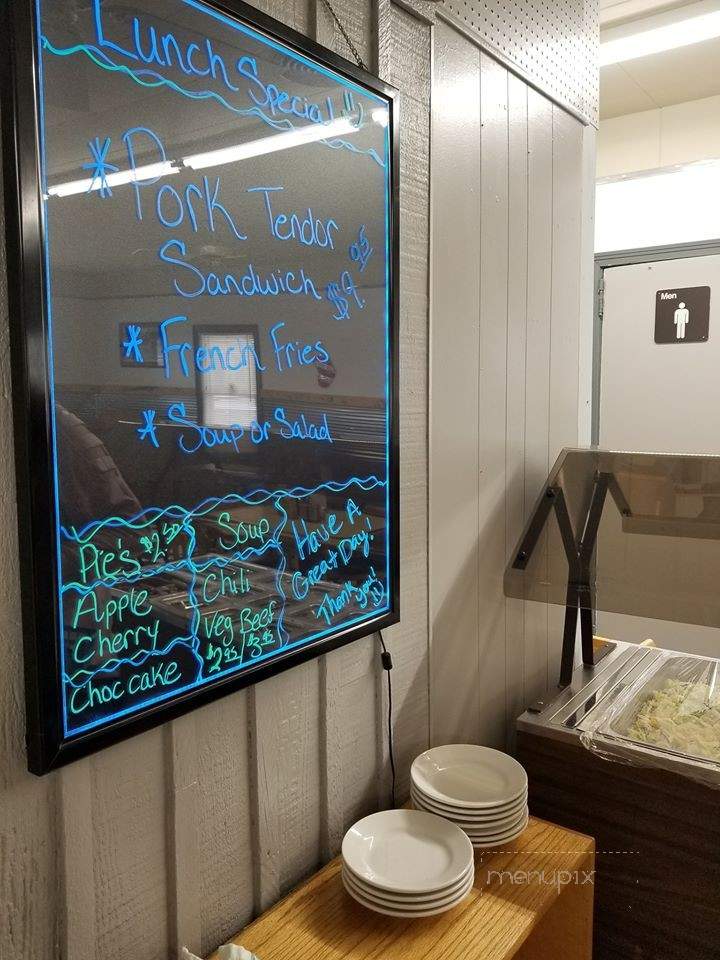 Lunch Special !!)
* Pork Tendor
Sandwich $9.95
* French Fries
* Soup or Salad
Pie's $2.50
Apple
Cherry
Choc cake
Soup
Chili
Veg Beef
$2.95/$3.95
Have A
Great Day!
Thank
you! :)
Men
menupix